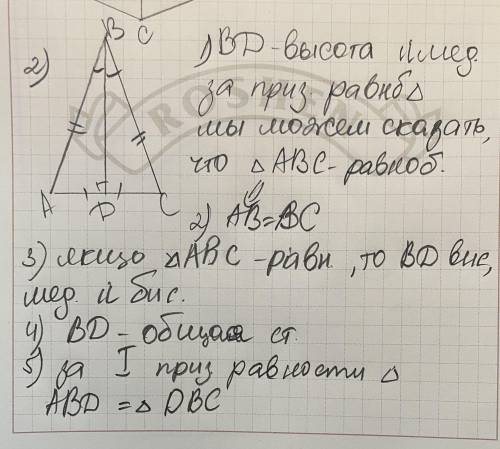 B
C
2)
A
D
C
1) BD - высота и мед.
за приз. равноб △
мы можем сказать,
что △ ABC - равноб.
2) AB = BC
3) якщо △ABC - равн., то BD вис,
мед. и бис.
4) BD - общая ст.
5) за I приз равности △
ABD = △ DBC
ROSHEN